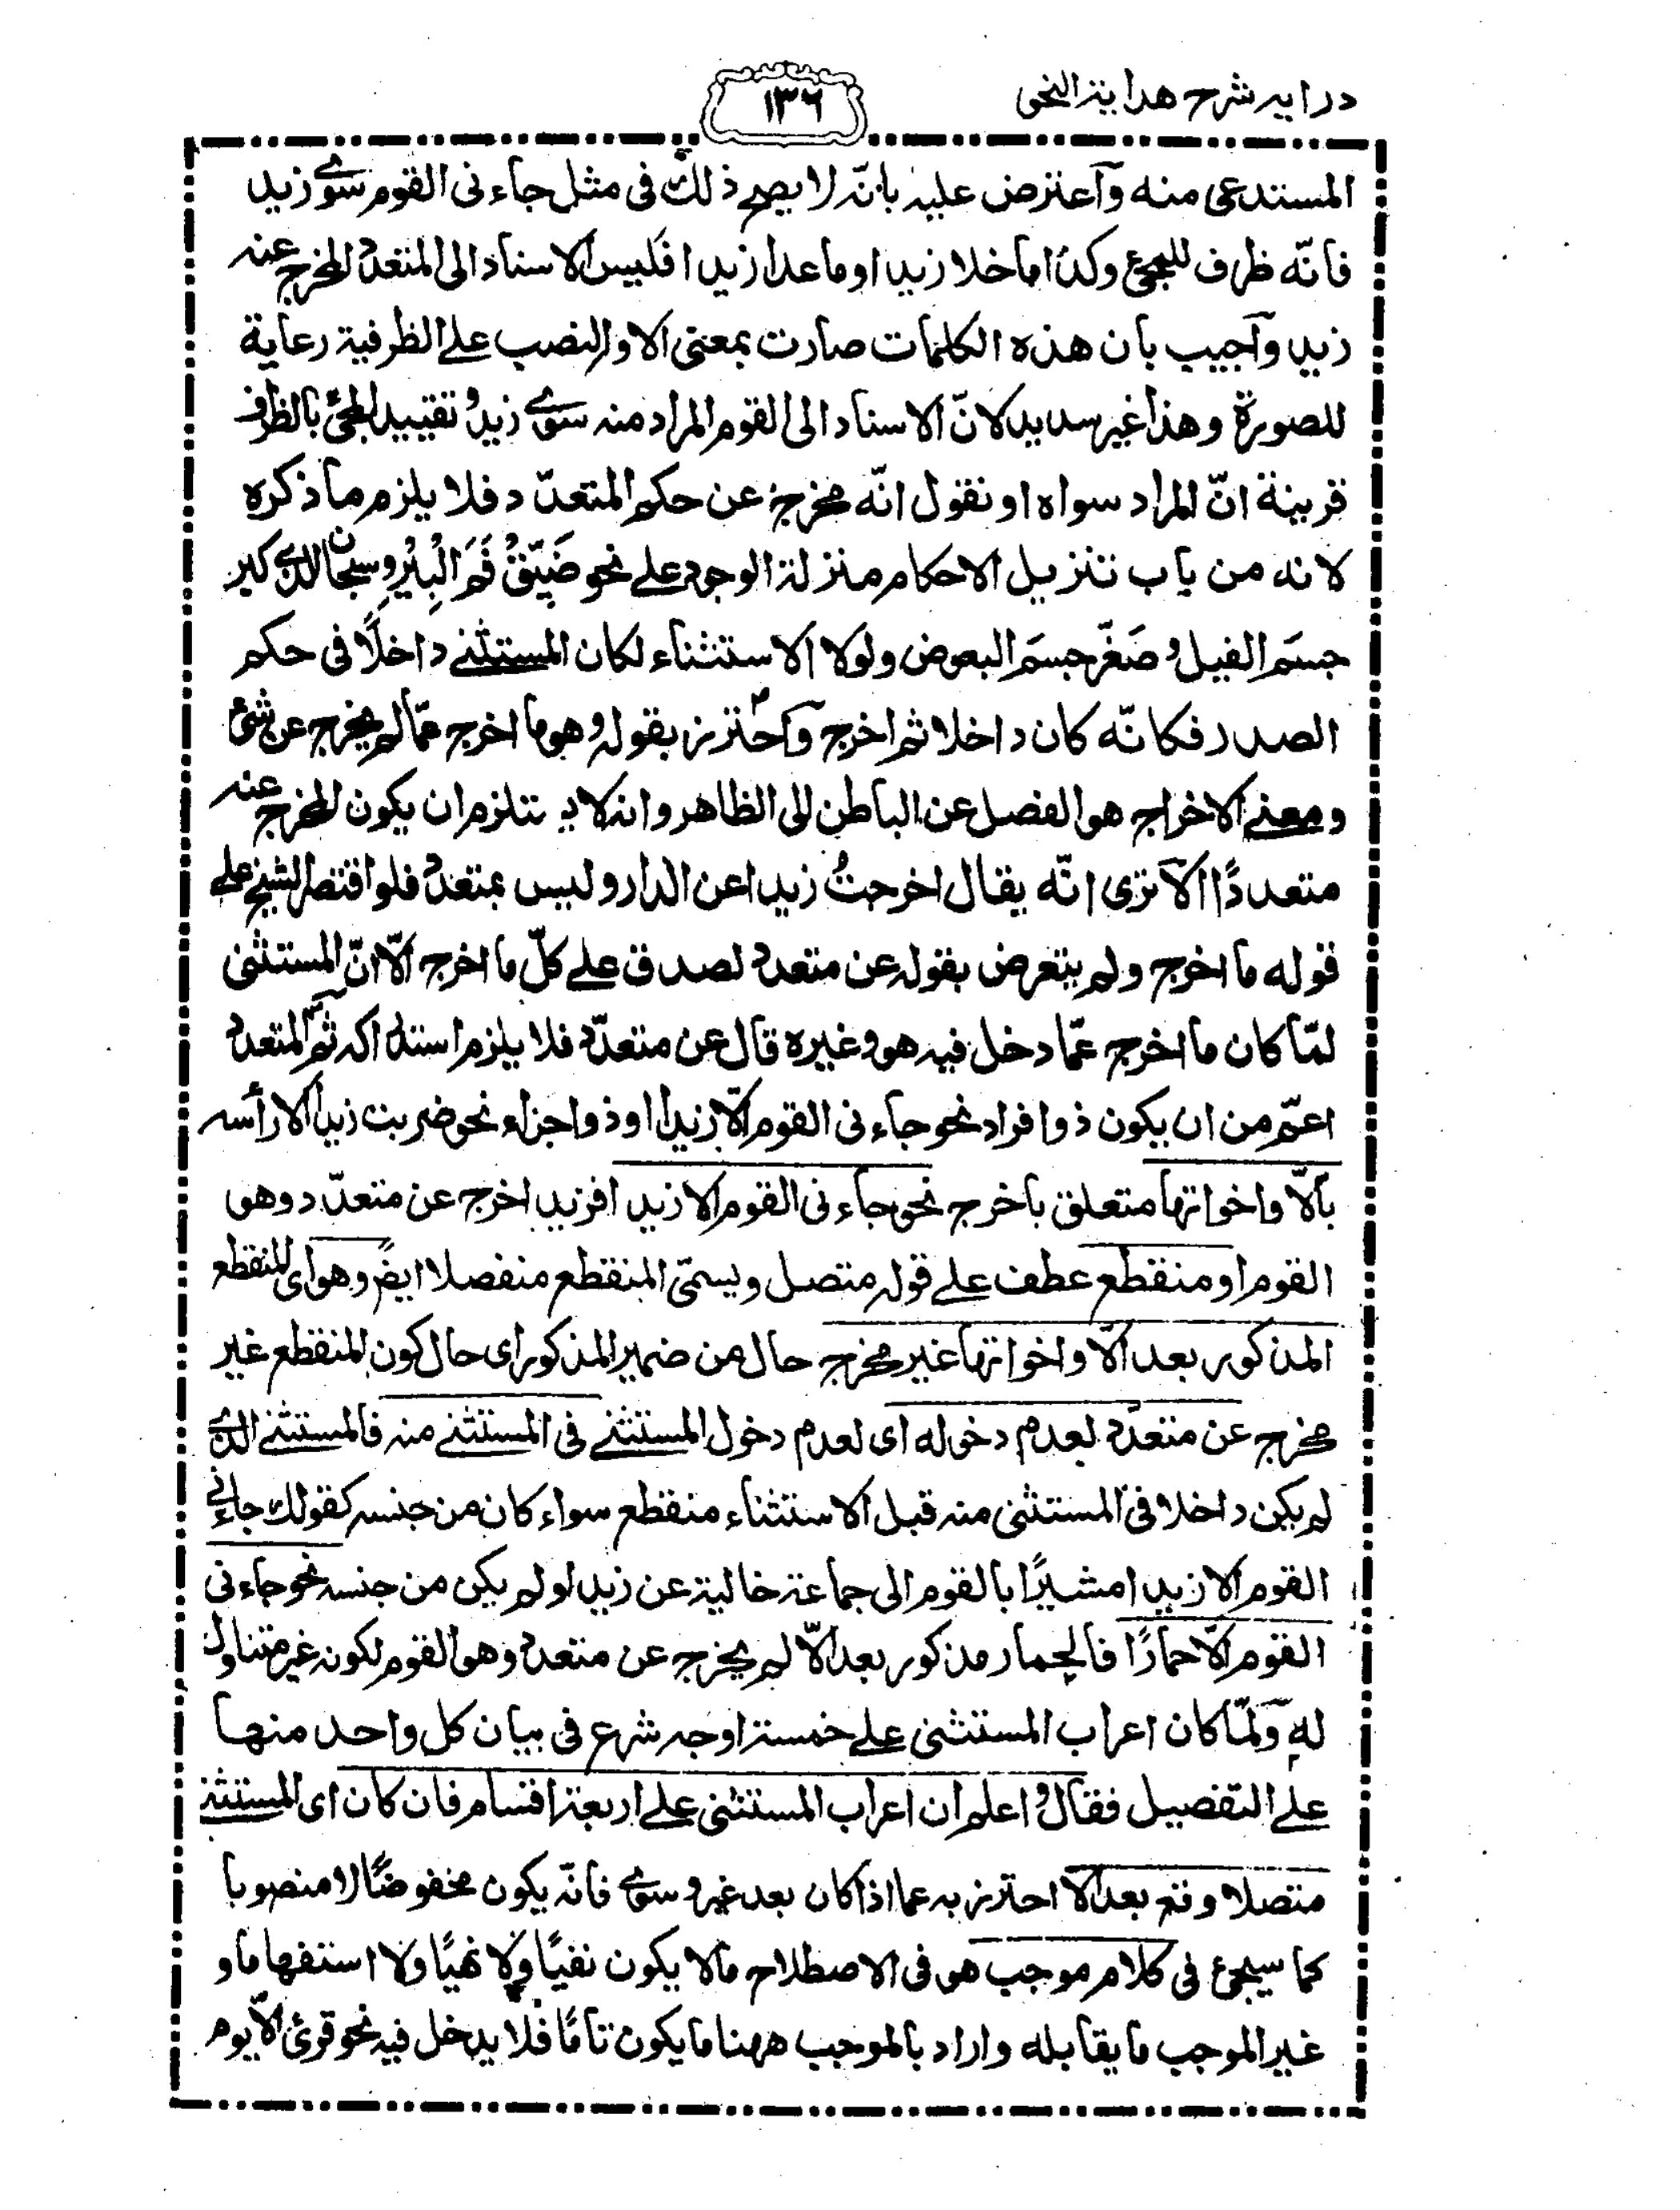 درايه شرح هداية النحو
١٣٦
المستدعى منه وآعترض عليه بانّه لا يصح ذلك فى مثل جاءنى القوم سوى زيد
فانّه ظرف للمجئ وكذا ما خلا زيدا او ما عدا زيدا فليس الاسناد الى المتعدد المخرج عنه
زيد وآجيب بان هذه الكلمات صارت بمعنى الا والنصب على الظرفية رعاية
للصورة وهذا غير سديد لانّ الاسناد الى القوم المراد منه سوى زيد وتقييد المجئ بالظرف
قرينة انّ المراد سواه او نقول انّه مخرج عن حكم المتعدّد فلا يلزم ما ذكره
لانه من باب تنزيل الاحكام منزلة الوجود على نحو ضَيِّقْ فَمَ الْبِئْرِ وسبحان الذى كبر
جسَم الفيل وصَغّر جسَم البعوض ولولا الاستثناء لكان المستثنى داخلًا فى حكم
الصدر فكانّه كان داخلا ثم اخرج وآحترز بقوله وهو ما اخرج عمّا لم يخرج عن شئ
ومعنى الاخراج هو الفصل عن الباطن الى الظاهر وانه لا يستلزم ان يكون المخرج عنه
متعددًا الآ ترى انّه يقال اخرجتُ زيدا عن الدار وليس بمتعدد فلو اقتصر الشيخ على
قوله ما اخرج ولم يتعرض بقوله عن متعدد لصدق على كلّ ما اخرج الّا انّ المستثنى
لمّا كان ما اخرج عمّا دخل فيه هو وغيره قال عن متعدّد فلا يلزم استدراكه ثمّ المتعدد
اعمّ من ان يكون ذو افراد نحو جاءنى القوم الّا زيدا او ذو اجزاء نحو ضربت زيدا الا رأسه
بالّا واخواتها متعلق باخرج نحو جاءنى القوم الا زيدا فزيد اخرج عن متعدّد وهو
القوم او منقطع عطف على قوله متصل ويسمّى المنقطع منفصلا ايضً وهو اى المنقطع
المذكور بعد الّا واخواتها غير مخرج حال من ضمير المذكور اى حال كون المنقطع غير
مخرج عن متعدّد لعدم دخوله اى لعدم دخول المستثنى فى المستثنى منه فالمستثنى الذى
لم يكن داخلا فى المستثنى منه قبل الاستثناء منقطع سواء كان من جنسه كقولك جاءنى
القوم الا زيدا مشيرًا بالقوم الى جماعة خالية عن زيد او لم يكن من جنسه نحو جاءنى
القوم الّا حمارًا فالحمار مذكور بعد الّا لم يخرج عن متعدد وهو القوم لكونه غير متناول
له ولمّا كان اعراب المستثنى على خمسة اوجه شرع فى بيان كل واحد منها
على التفصيل فقال واعلم ان اعراب المستثنى على اربعة اقسام فان كان اى المستثنى
متصلا وقع بعد الا احترز به عما اذا كان بعد غير وسوى فانّه يكون مخفوضًا لا منصوبا
كما سيجئ فى كلام موجب هو فى الاصطلاح ما لا يكون نفيًا ولا نهيًا ولا استفهاما و
غير الموجب ما يقابله واراد بالموجب ههنا ما يكون تامًا فلا يدخل فيه نحو قرئ الّا يوم